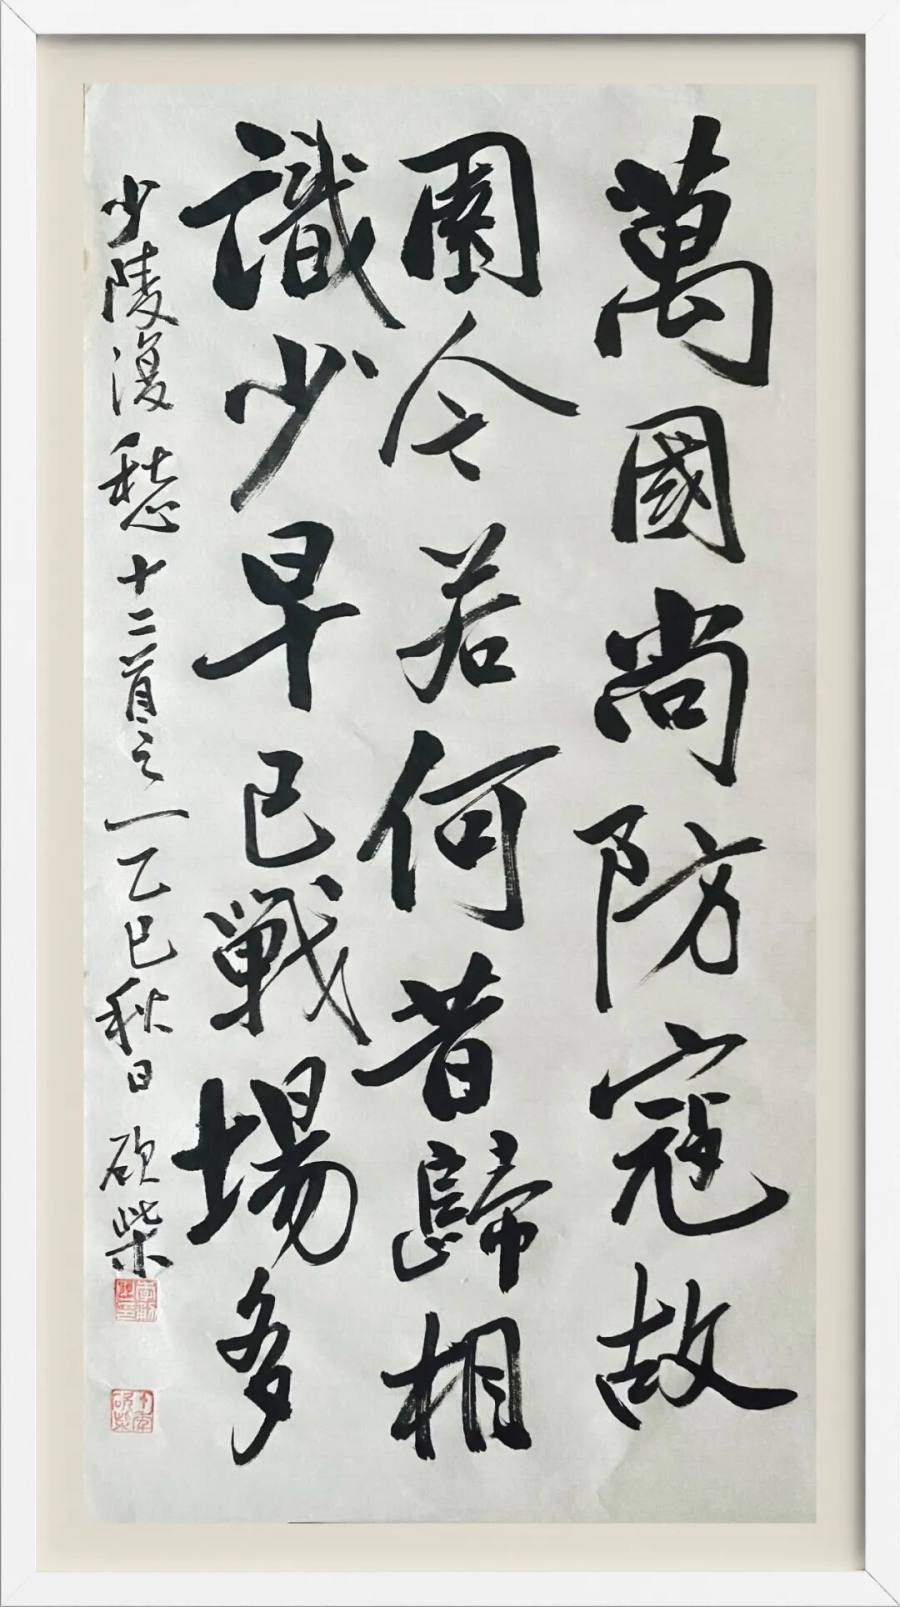 萬國尚防寇故
園今若何昔歸相
識少早已戰場多
少陵復愁十二首之一乙巳秋日砍柴